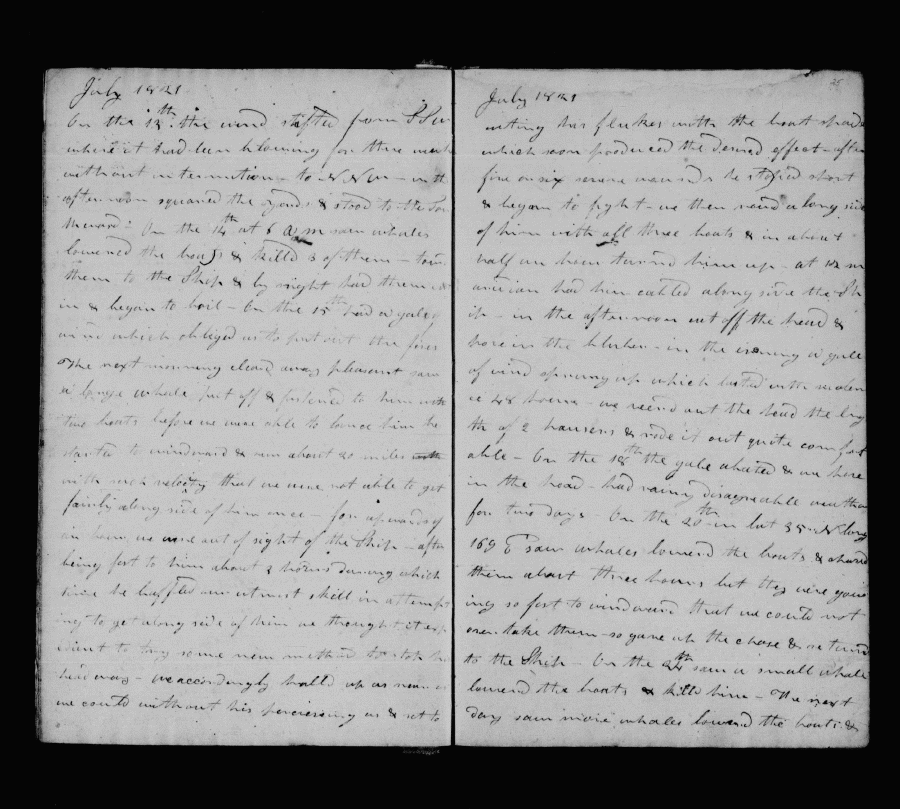 July 1821
On the 13th the wind shifted from SSW
where it had been blowing for three weeks
without intermition - to NNW - in the
afternoon squared the yards & stood to the Sou
thward - On the 14th at 6 am saw whales
lowered the boats & killd 3 of them - tow
them to the Ship & by night had them cut
in & began to boil - On the 15th had a gale of
wind which obliged us to put out the fires
The next morning cleard away pleasant saw
a large whale put off & fastened to him with
two boats before we were able to lance him he
started to windward & run about 20 miles
with such velocity that we were not able to get
fairly along side of him once - for upwards of
an hour we were out of sight of the Ship - after
being fast to him about 3 hours during which
time he baffled our utmost skill in attempt
ing to get along side of him we thought it exp
idient to try some new method to stop his
head way - we accordingly halld up as near as
we could without his perceiveing us & set to
26
July 1821
cutting his flukes with the boat spade
which soon produced the desired effect - after
five or six severe wounds he stoped short
& began to fight - we then row'd along side
of him with all three boats & in about
half an hour turned him up - at 12 m
meridian had him cabled along side the Sh
ip - in the afternoon cut off the head &
hove in the blubber - in the evening a gale
of wind sprung up which lasted with violen
ce 48 hours - we veerd out the head the leng
th of 2 hausers & rode it out quite comfort
able - On the 18th the gale abated & we hove
in the head - had rainy disagreeable weather
for two days - On the 20th in lat 35 N long
169 E saw whales lowered the boats & chased
them about three hours but they were going
ing so fast to windward that we could not
over take them - so gave up the chase & returned
to the Ship - On the 24th saw a small whale
lowered the boats & killd him - The next
day saw more whales lowered the boats &